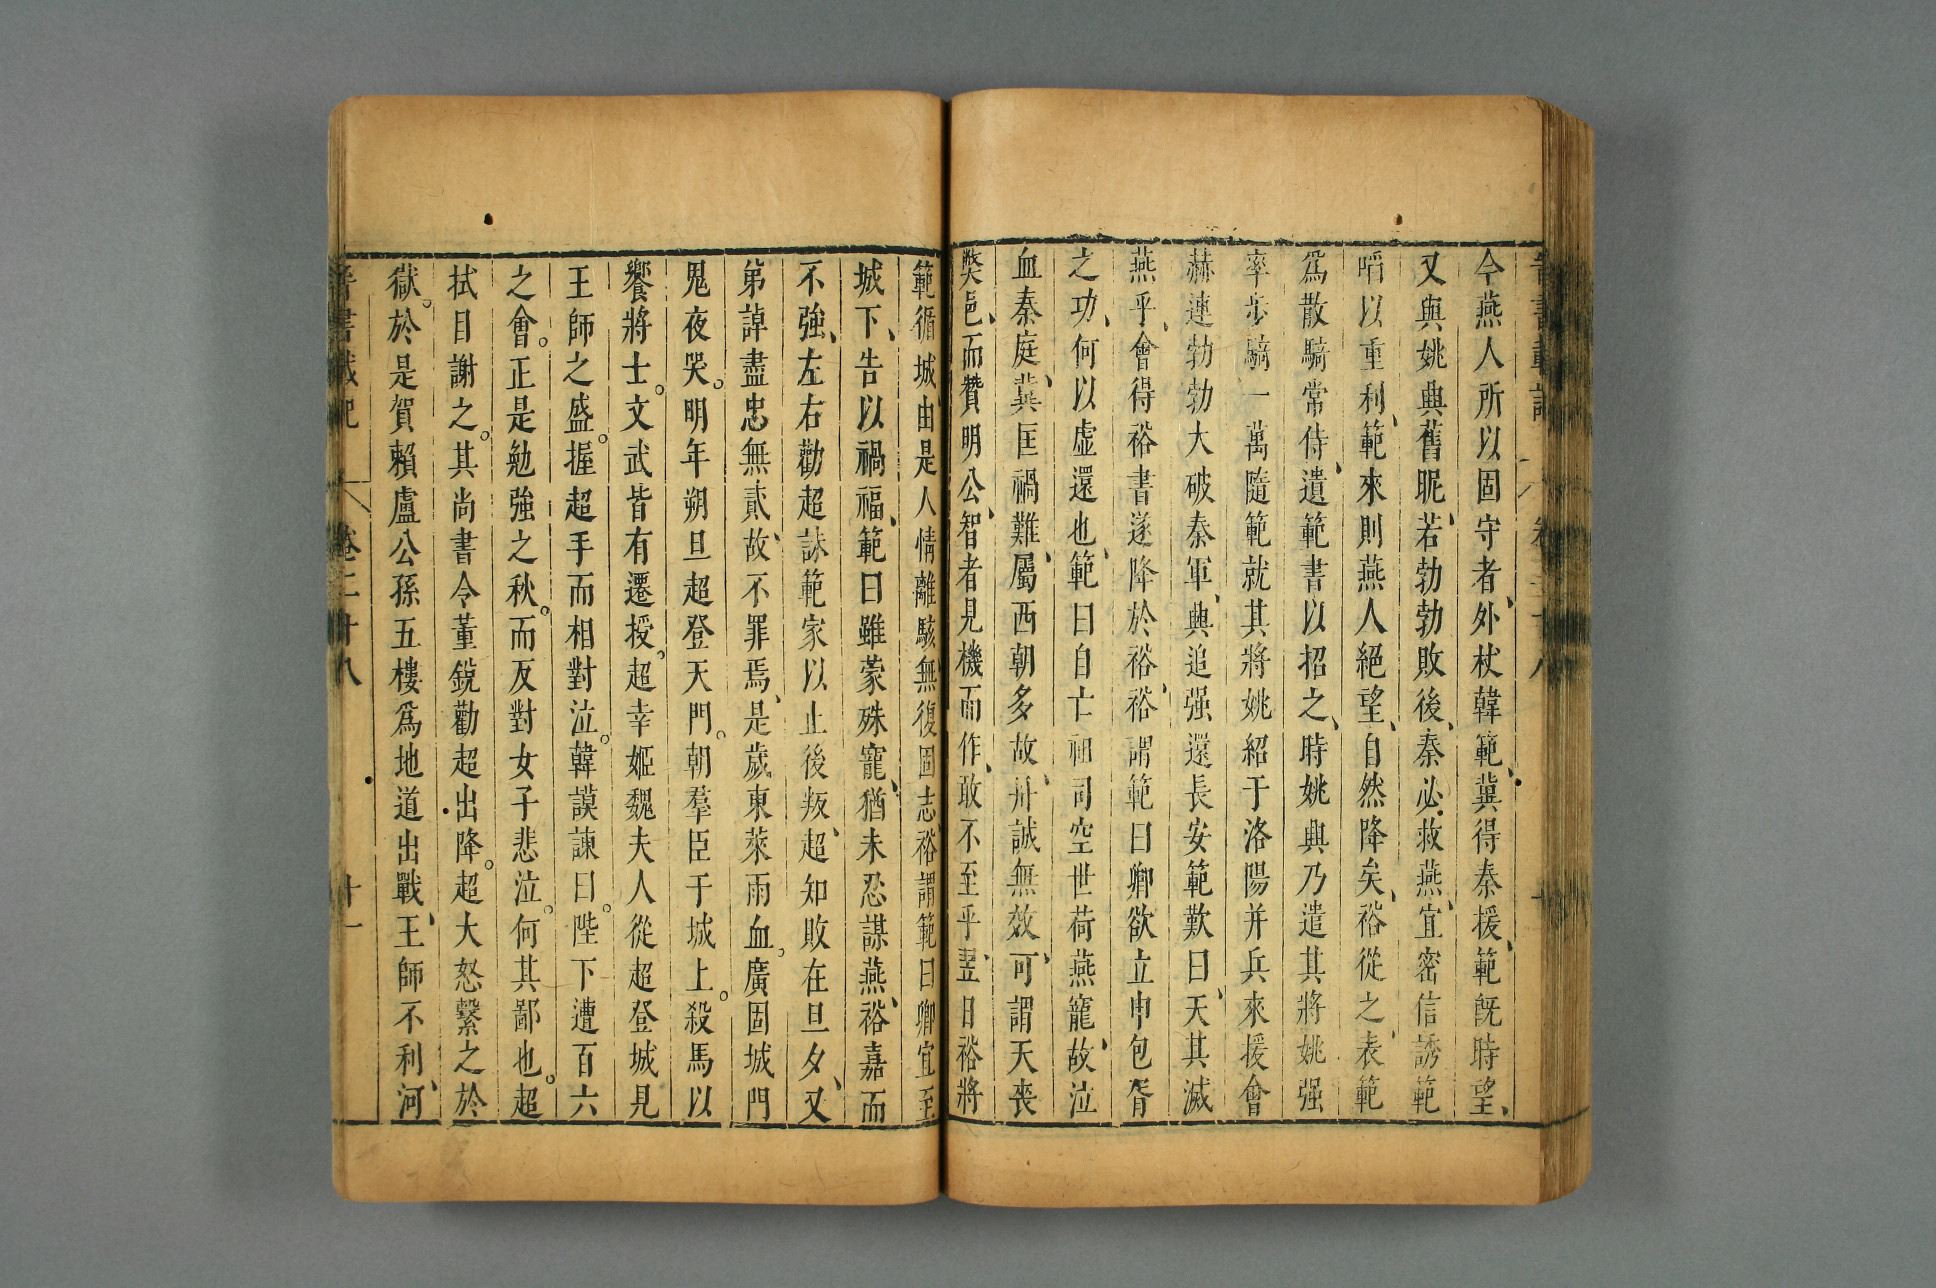 晉書載記 卷二十八 十
今燕人所以固守者外杖韓範冀得秦援範旣時望
又與姚興舊昵若勃勃敗後秦必救燕宜密信誘範
啗以重利範來則燕人絕望自然降矣裕從之表範
爲散騎常侍遺範書以招之時姚興乃遣其將姚强
率步騎一萬隨範就其將姚紹于洛陽并兵來援會
赫連勃勃大破秦軍興追强還長安範歎曰天其滅
燕乎會得裕書遂降於裕裕謂範曰卿欲立申包胥
之功何以虛還也範曰自亡祖司空世荷燕寵故泣
血秦庭冀匡禍難屬西朝多故丹誠無效可謂天喪
獘邑而贊明公智者見機而作敢不至乎翌日裕將
範循城由是人情離駭無復固志裕謂範曰卿宜至
城下告以禍福範曰雖蒙殊寵猶未忍謀燕裕嘉而
不強左右勸超誅範家以止後叛超知敗在旦夕又
弟諄盡忠無貳故不罪焉是歲東萊雨血廣固城門
鬼夜哭明年朔旦超登天門朝羣臣于城上殺馬以
饗將士文武皆有遷授超幸姬魏夫人從超登城見
王師之盛握超手而相對泣韓𧨏諫曰陛下遭百六
之會正是勉強之秋而反對女子悲泣何其鄙也超
拭目謝之其尚書令董銳勸超出降超大怒繫之於
獄於是賀賴盧公孫五樓爲地道出戰王師不利河
晉書載記 卷二十八 十一